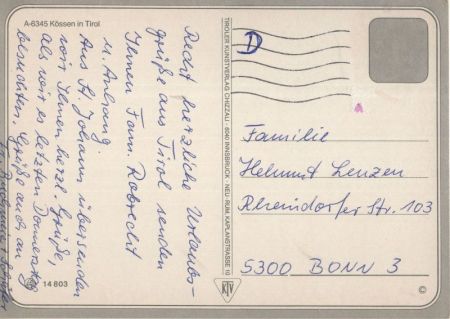 A-6345 Kössen in Tirol
Recht herzliche Urlaubs-
grüße aus Tirol senden
Ihnen Fam. Robrecht
u. Anhang.
Aus St. Johann übersenden
wir Ihnen herzl. Grüße,
als wir es letzten Donnerstag
besuchten. Grüße auch an
Fr.
14 803
TIROLER KUNSTVERLAG CHIZZALI · 6040 INNSBRUCK · NEU-RUM, KAPLANSTRASSE 10
KTV
D
Familie
Helmut Lenzen
Rheindorfer Str. 103
5300 BONN 3
©